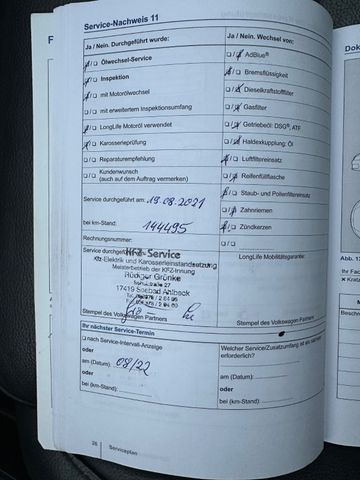 Service-Nachweis 11
Ja / Nein. Durchgeführt wurde:
Ölwechsel-Service
Inspektion
mit Motorölwechsel
mit erweitertem Inspektionsumfang
LongLife Motoröl verwendet
Karosserieprüfung
Reparaturempfehlung
Kundenwunsch
(auch auf dem Auftrag vermerken)
Service durchgeführt am: 19.08.2021
bei km-Stand: 144495
Rechnungsnummer:
Service durchgeführt
KFZ-Service
Kfz-Elektrik und Karosserieinstandsetzung
Meisterbetrieb der KFZ-Innung
Rüdiger Grönke
17419 Seebad Ahlbeck
Stempel des Volkswagen Partners
Ja / Nein. Wechsel von:
AdBlue®
Bremsflüssigkeit
Dieselkraftstofffilter
Gasfilter
Getriebeöl: DSG®, ATF
Haldexkupplung: Öl
Luftfiltereinsatz
Reifenfüllflasche
Staub- und Pollenfiltereinsatz
Zahnriemen
Zündkerzen
LongLife Mobilitätsgarantie:
Stempel des Volkswagen Partners
Ihr nächster Service-Termin
nach Service-Intervall-Anzeige
oder
am (Datum) 08/22
oder
bei (km-Stand):
Welcher Service/Zusatzumfang ist als nächster
erforderlich?
am (Datum):
oder
bei (km-Stand):
26 Serviceplan
F
Dok
Abb. 1
Ihr Fac
Kratz